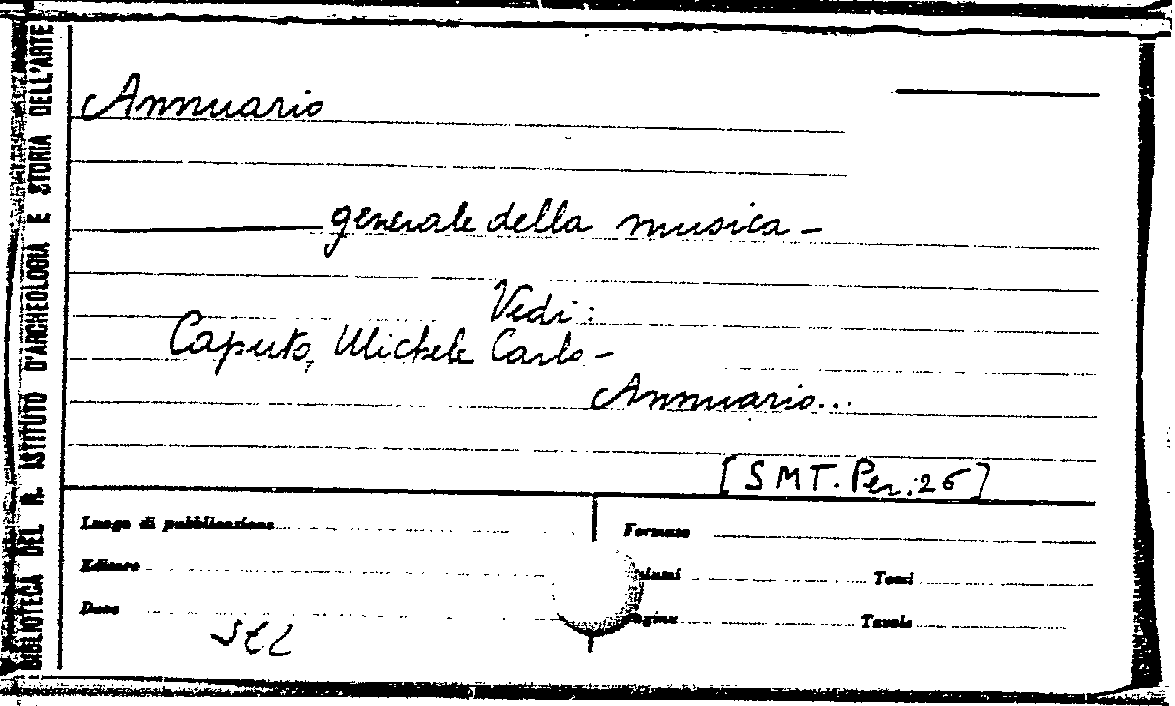 BIBLIOTECA DEL R. ISTITUTO D'ARCHEOLOGIA E STORIA DELL'ARTE
Annuario
generale della musica –
Vedi:
Caputo, Michele Carlo –
Annuario...
[SMT. Per. 26]
Luogo di pubblicazione
Formato
Editore
Tomi
Data
Tavole